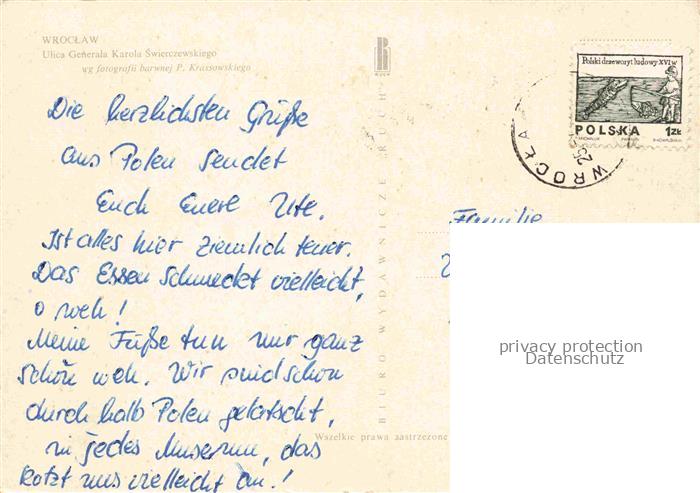 WROCŁAW
Ulica Generała Karola Świerczewskiego
wg fotografii barwnej P. Krassowskiego
RUCH
Polski drzeworyt ludowy XVI w
POLSKA 1ZŁ
WROCŁA
Die herzlichsten Grüße
aus Polen sendet
Euch Euere Ute.
Ist alles hier ziemlich teuer.
Das Essen schmecket vielleicht,
o weh!
Meine Füße tun mir ganz
schön weh. Wir sind schon
durch halb Polen gelatscht,
in jedes Museum, das
kotzt uns vielleicht an!
BIURO WYDAWNICZE RUCH
Wszelkie prawa zastrzeżone
Familie
privacy protection
Datenschutz